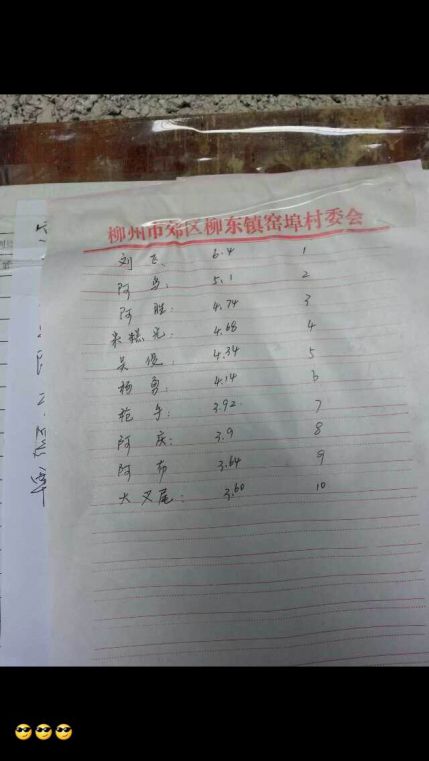 柳州市郊区柳东镇窑埠村委会
刘飞 6.4 1
阿鸟: 5.1 2
阿胜: 4.74 3
4.68 4
吴俊: 4.34 5
杨勇: 4.14 6
枪手: 3.92 7
阿庆: 3.9 8
阿布 3.64 9
大叉尾: 3.60 10